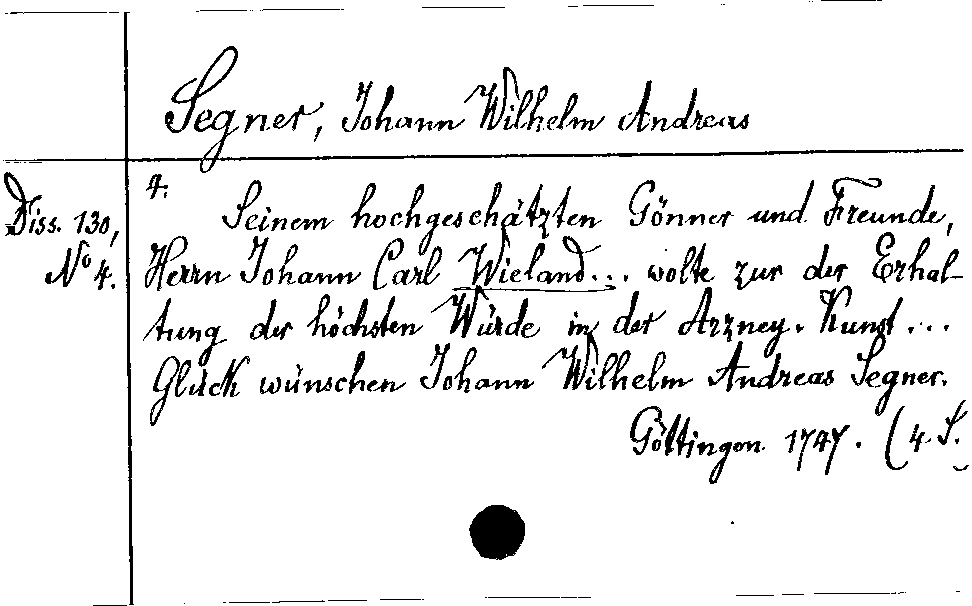 Segner, Johann Wilhelm Andreas
4.
Diss. 130,
No 4.
Seinem hochgeschätzten Gönner und Freunde,
Herrn Johann Carl Wieland... wolte zur der Erhal-
tung der höchsten Würde in der Arzney-Kunst...
Glück wünschen Johann Wilhelm Andreas Segner.
Göttingen 1747. (4 S.)